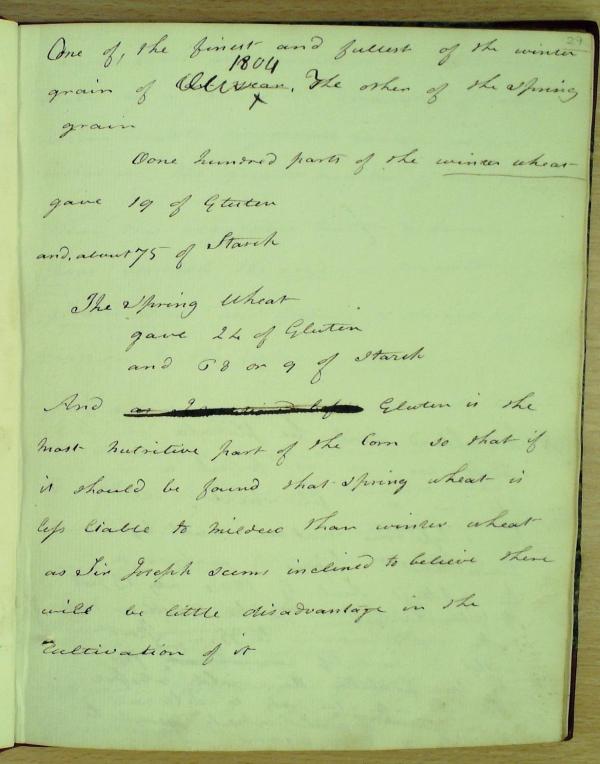 29
One of, the finest and fullest of the winter
1804
grain of year. The other of the spring
x
grain
Oone hundred parts of the winter wheat
gave 19 of Gluten
and, about 75 of Starch
The spring Wheat
gave 24 of Gluten
and 68 or 9 of starch
And as I mentioned before Gluten is the
most nutritive part of the Corn so that if
it should be found that spring wheat is
less liable to mildew than winter wheat
as Sir Joseph seems inclined to believe there
will be little disadvantage in the
Cultivation of it